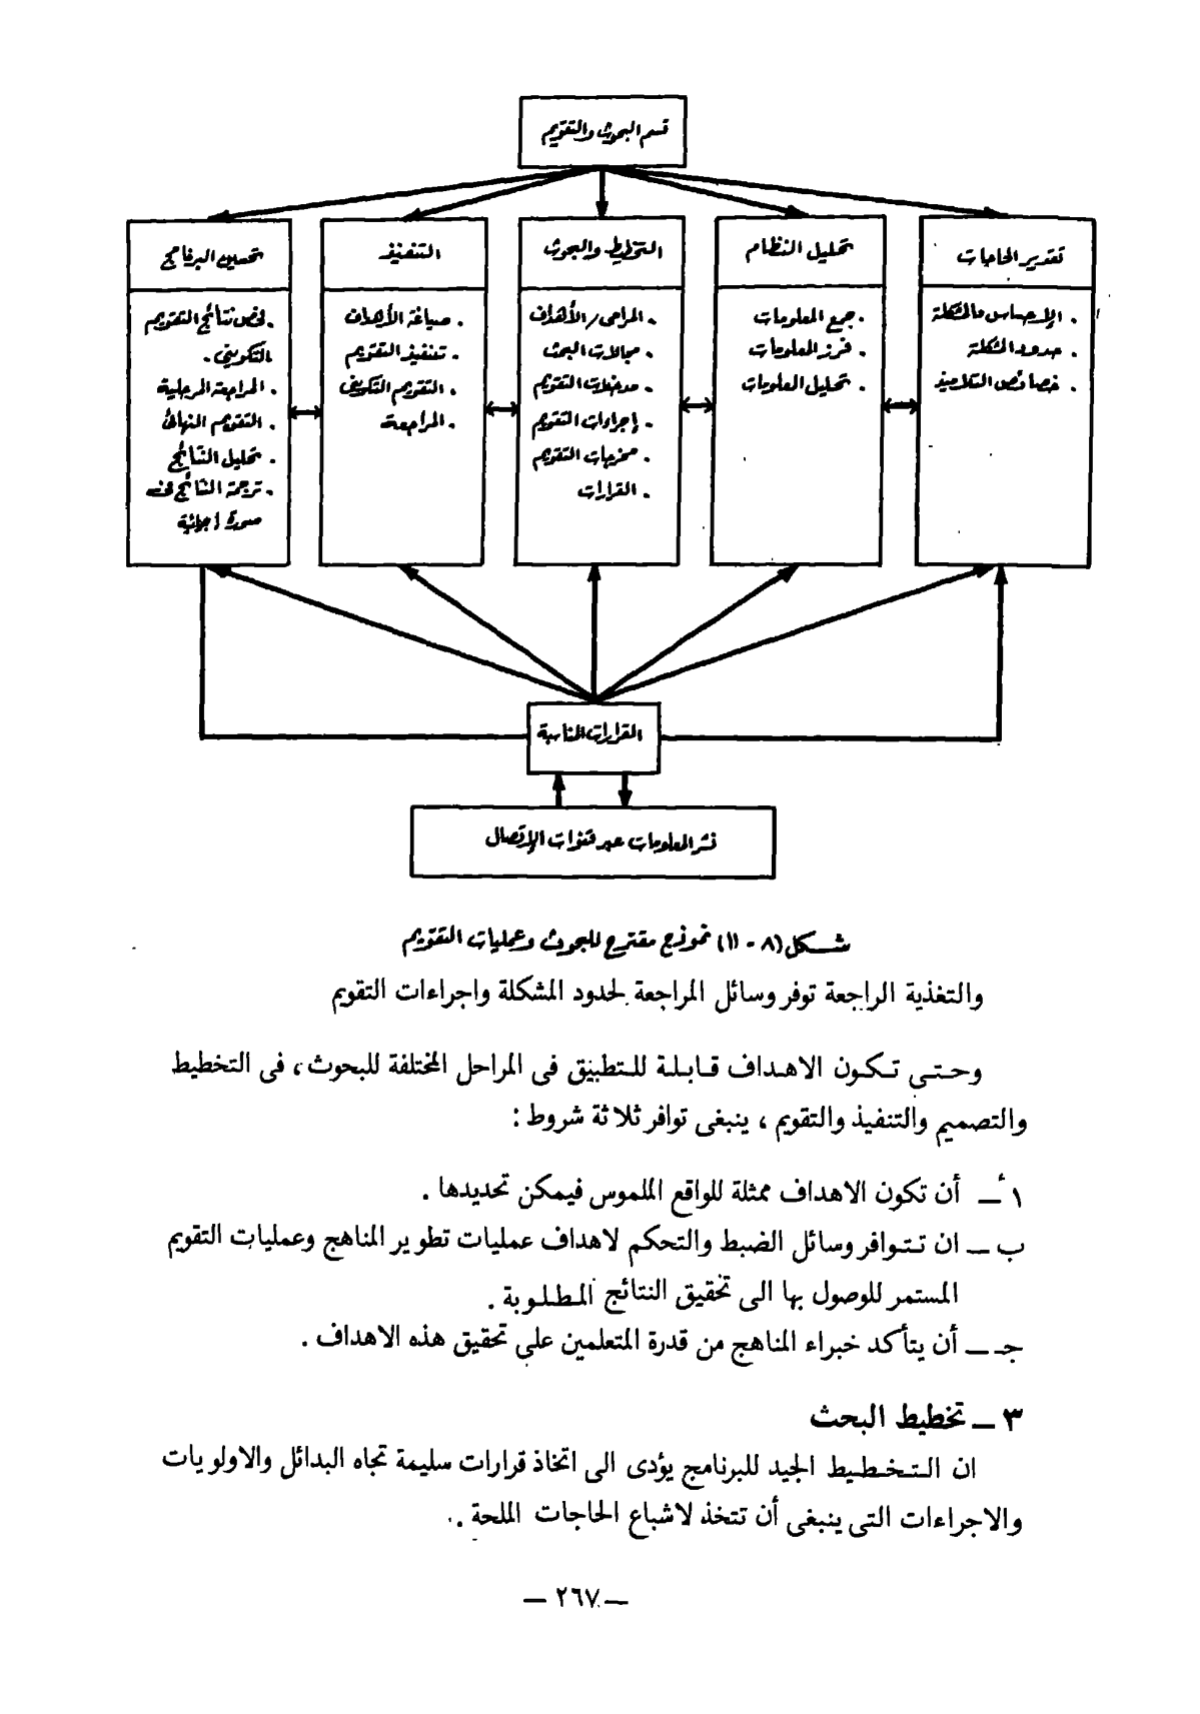 قسم البحوث والتقويم
تقدير الحاجات
. الإحساس بالمشكلة
. حدود المشكلة
. خصائص التلاميذ
تحليل النظام
. جمع المعلومات
. فرز المعلومات
. تحليل المعلومات
التخطيط والبحوث
. المرامى / الأهداف
. مجالات البحث
. مدخلات التقويم
. إجراءات التقويم
. مخرجات التقويم
. القرارات
التنفيذ
. صياغة الأهداف
. تنفيذ التقويم
. التقويم التكوينى
. المراجعة
تحسين البرنامج
. فحص نتائج التقويم
التكوينى .
. المراجعة المرحلية
. التقويم النهائى
. تحليل النتائج
. ترجمة النتائج فى
صورة إجرائية
القرارات المناسبة
نشر المعلومات عبر قنوات الإتصال
شـكل (٨ - ١١) نموذج مقترح للبحوث وعمليات التقويم
والتغذية الراجعة توفر وسائل المراجعة لحدود المشكلة واجراءات التقويم
وحـتـى تـكـون الاهـداف قـابـلـة للـتطبيق فى المراحل المختلفة للبحوث ، فى التخطيط
والتصميم والتنفيذ والتقويم ، ينبغى توافر ثلاثة شروط :
١أ ــ أن تكون الاهداف ممثلة للواقع الملموس فيمكن تحديدها .
ب ــ ان تـتـوافر وسائل الضبط والتحكم لاهداف عمليات تطوير المناهج وعمليات التقويم
المستمر للوصول بها الى تحقيق النتائج المـطـلـوبة .
جـ ــ أن يتأكد خبراء المناهج من قدرة المتعلمين على تحقيق هذه الاهداف .
٣ ــ تخطيط البحث
ان الـتـخـطـيط الجيد للبرنامج يؤدى الى اتخاذ قرارات سليمة تجاه البدائل والاولويات
والاجراءات التى ينبغى أن تتخذ لاشباع الحاجات الملحة .
— ٢٦٧ —